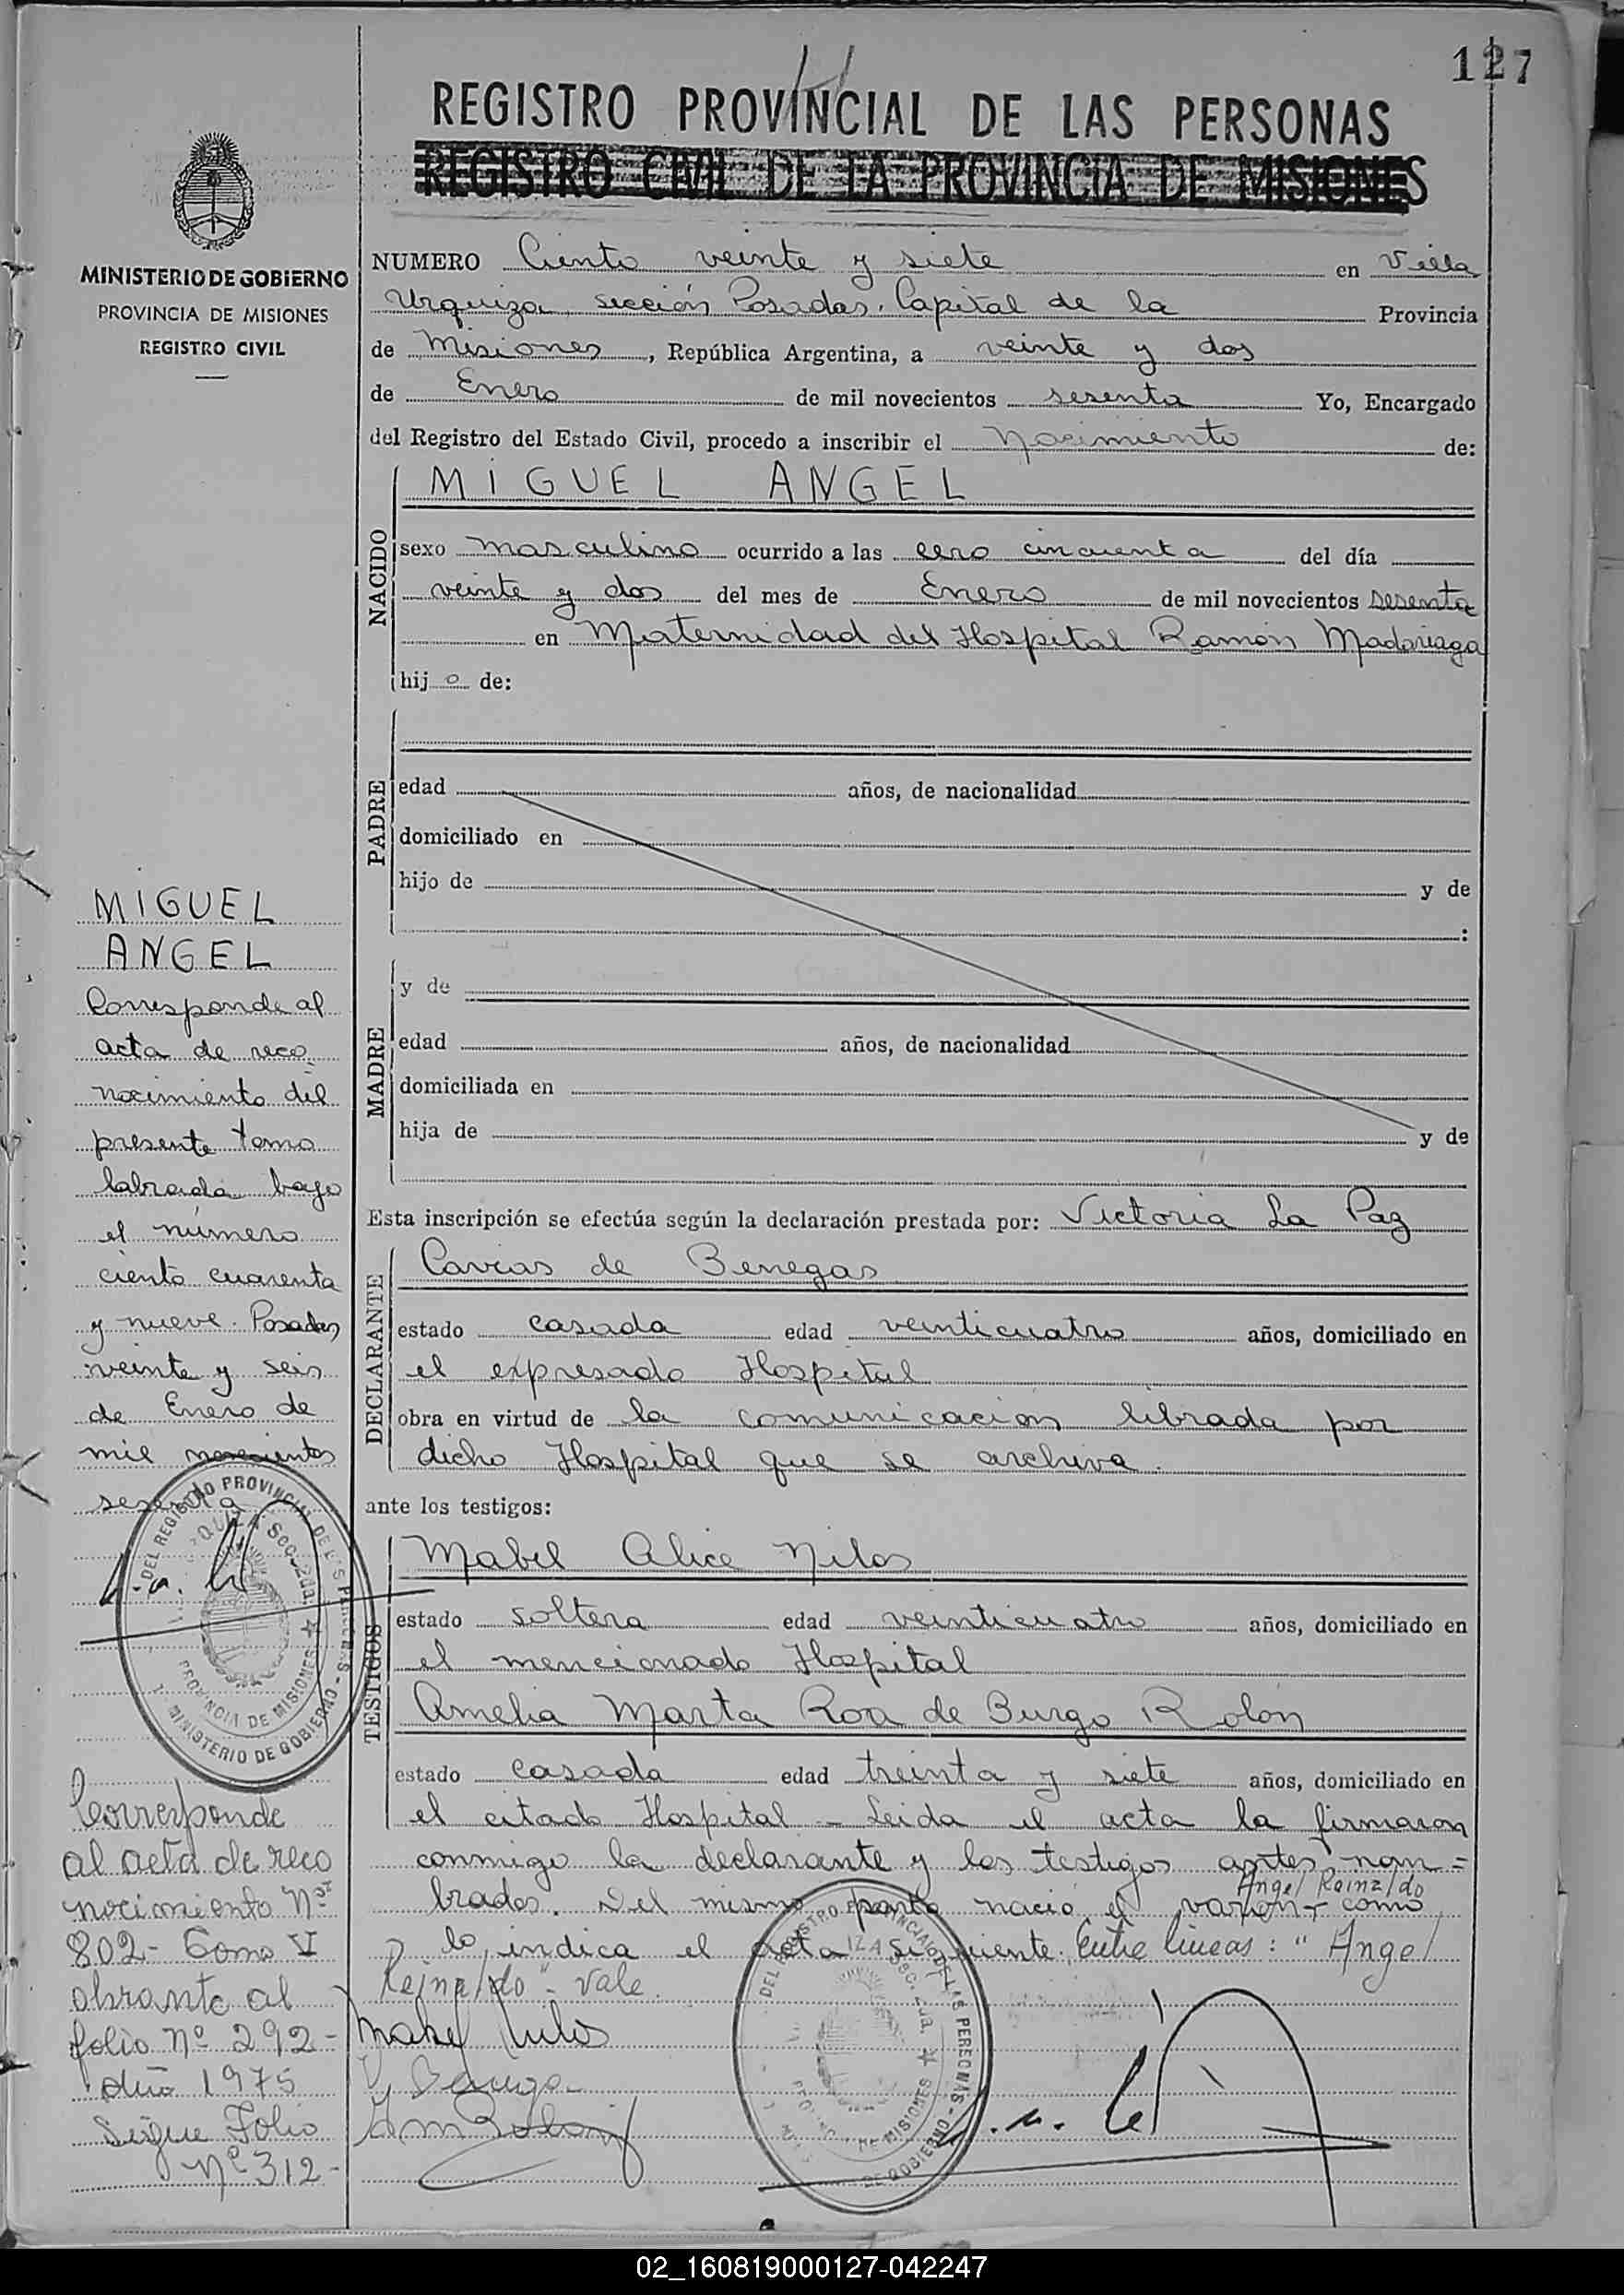 127
REGISTRO PROVINCIAL DE LAS PERSONAS
REGISTRO CIVIL DE LA PROVINCIA DE MISIONES
MINISTERIO DE GOBIERNO
PROVINCIA DE MISIONES
REGISTRO CIVIL
NUMERO Ciento veinte y siete en Villa
Urquiza, sección Posadas, Capital de la Provincia
de Misiones, República Argentina, a veinte y dos
de Enero de mil novecientos sesenta Yo, Encargado
del Registro del Estado Civil, procedo a inscribir el Nacimiento de:
NACIDO
MIGUEL ANGEL
sexo masculino ocurrido a las cero cincuenta del día
veinte y dos del mes de Enero de mil novecientos sesenta
en Maternidad del Hospital Ramón Madariaga
hij o de:
PADRE
edad años, de nacionalidad
domiciliado en
hijo de y de
:
MADRE
y de
edad años, de nacionalidad
domiciliada en
hija de y de
Esta inscripción se efectúa según la declaración prestada por: Victoria La Paz
DECLARANTE
de Benegas
estado casada edad veinticuatro años, domiciliado en
el expresado Hospital
obra en virtud de la comunicación librada por
dicho Hospital que se archiva.
ante los testigos:
TESTIGOS
Mabel Alice Nilos
estado soltera edad veinticuatro años, domiciliado en
el mencionado Hospital
Amelia Marta Roa de Burgo Rolón
estado casada edad treinta y siete años, domiciliado en
el citado Hospital - Leida el acta la firmaron
conmigo la declarante y los testigos antes nom=
Angel Reinaldo
brados. Del mismo parto nació el varon como
lo indica el acta siguiente. Entre lineas: "Angel
Reinaldo" - Vale
MIGUEL
ANGEL
Corresponde al
acta de reco
nocimiento del
presente tomo
labrada bajo
el número
ciento cuarenta
y nueve. Posadas,
veinte y seis
de Enero de
mil novecientos
sesenta
DEL REGISTRO PROVINCIAL DE LAS PERSONAS
Sec. 2da.
PROVINCIA DE MISIONES
MINISTERIO DE GOBIERNO
Corresponde
al acta de reco
nocimiento Nº
802- Tomo V
obrante al
folio Nº 292-
Año 1975
Sigue Folio
Nº 312-
DEL REGISTRO PROVINCIAL DE LAS PERSONAS
Sec. 2da.
DE MISIONES
DE GOBIERNO
02_160819000127-042247